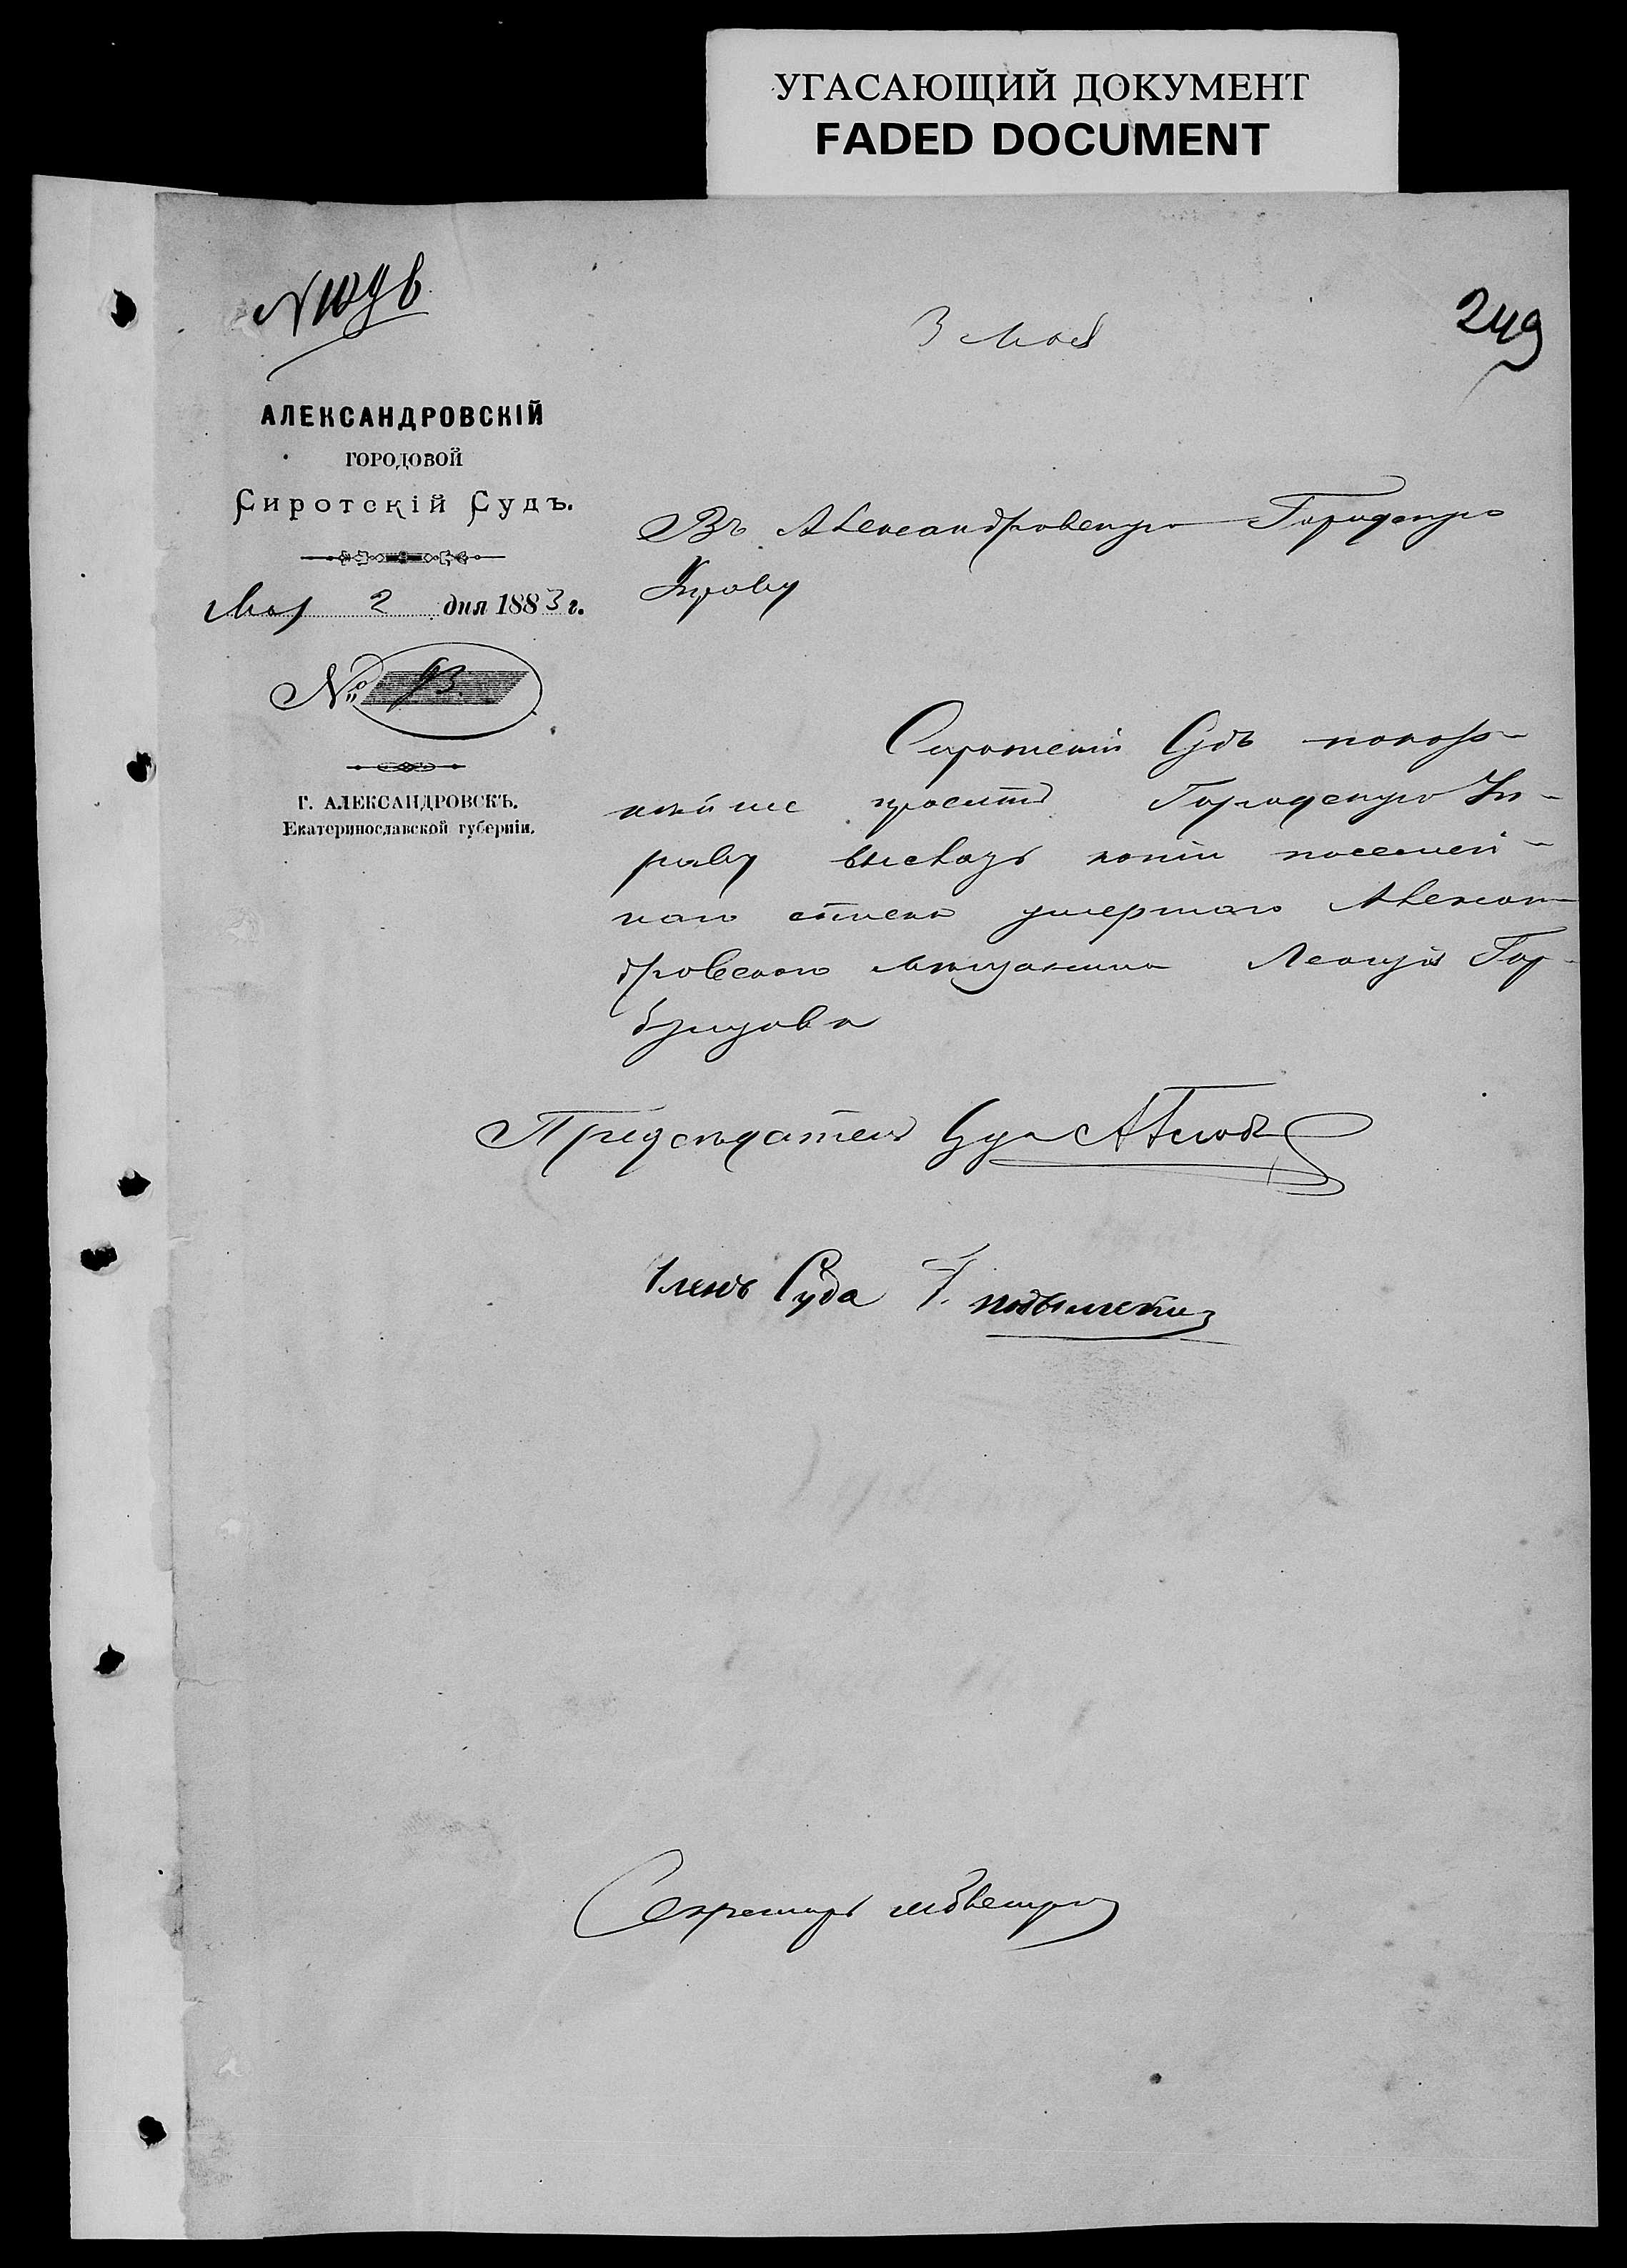 УГАСАЮЩИЙ ДОКУМЕНТ
FADED DOCUMENT
249
3 Мая
АЛЕКСАНДРОВСКІЙ
ГОРОДОВОЙ
Сиротскій Судъ.
Мая 2 дня 1883 г.
№ 93
Г. АЛЕКСАНДРОВСКЪ.
Екатеринославской губерніи.
Въ Александровскую Городскую
Управу
Сиротскій Судъ покор-
нѣйше проситъ Городскую Уп-
раву выслать копію посемей-
наго списка умершаго Алексан-
дровскаго мѣщанина
Предсѣдатель Суда
Членъ Суда
Секретарь